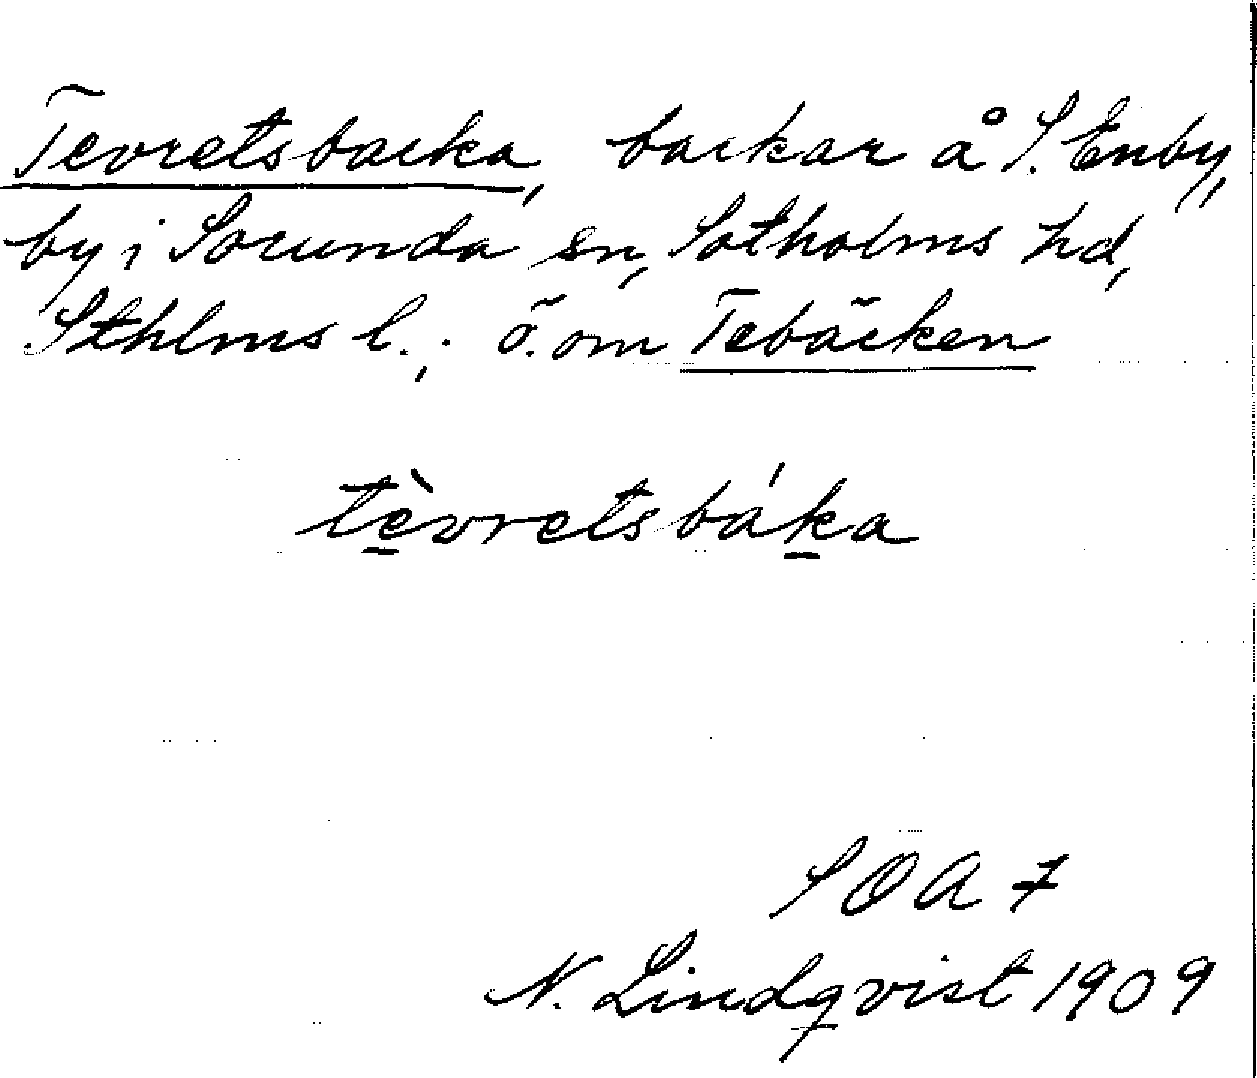 Tevretsbacka, backar å S. Enby,
by i Sorunda sn, Sotholms hd,
Sthlms l.; ö. om Tebäcken
tèvretsbáka
SOA 7
N. Lindqvist 1909